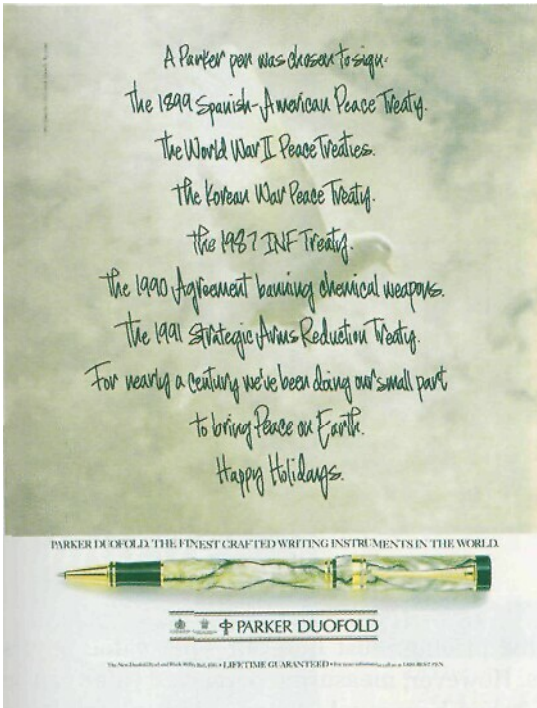 A Parker pen was chosen to sign:
The 1899 Spanish-American Peace Treaty.
The World War II Peace Treaties.
The Korean War Peace Treaty.
The 1987 INF Treaty.
The 1990 Agreement banning chemical weapons.
The 1991 Strategic Arms Reduction Treaty.
For nearly a century we've been doing our small part
to bring Peace on Earth.
Happy Holidays.
PARKER DUOFOLD. THE FINEST CRAFTED WRITING INSTRUMENTS IN THE WORLD.
PARKER DUOFOLD
The New Duofold Pearl and Black • LIFETIME GUARANTEED • For more information call us at 1-800-BEST PEN.